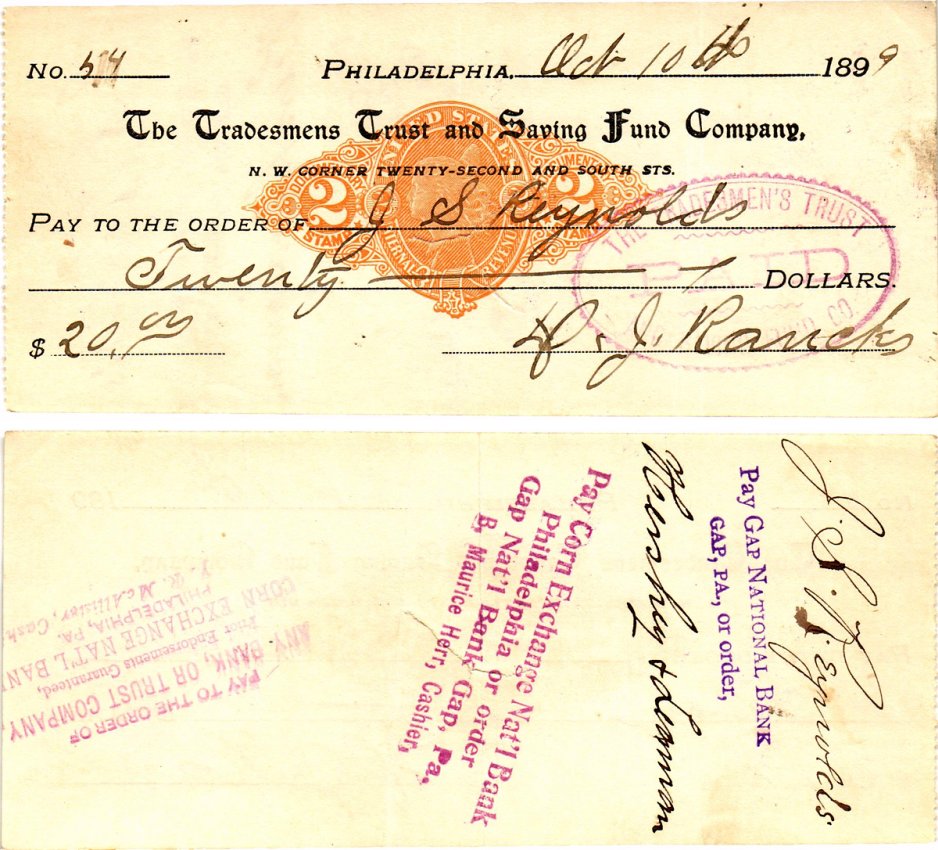 No. 54 PHILADELPHIA, Oct 10th 1899
The Tradesmens Trust and Saving Fund Company,
N. W. CORNER TWENTY-SECOND AND SOUTH STS.
UNITED STATES
DOCUMENTARY 2 STAMP
DOCUMENTARY 2 STAMP
INTERNAL REVENUE
PAY TO THE ORDER OF J S Reynolds
Twenty DOLLARS.
$ 20.00
D. J. Rancks
THE TRADESMEN'S TRUST
PAID
CO
J. S. Reynolds
Pay GAP NATIONAL BANK
GAP, PA., or order,
Hershey & Leaman
Pay Corn Exchange Nat'l Bank
Philadelphia or order
Gap Nat'l Bank Gap, Pa.
B. Maurice Herr, Cashier,
PAY TO THE ORDER OF
ANY BANK, OR TRUST COMPANY,
Prior Endorsements Guaranteed,
CORN EXCHANGE NAT'L BANK
PHILADELPHIA, PA.
McAllister, Cash
189